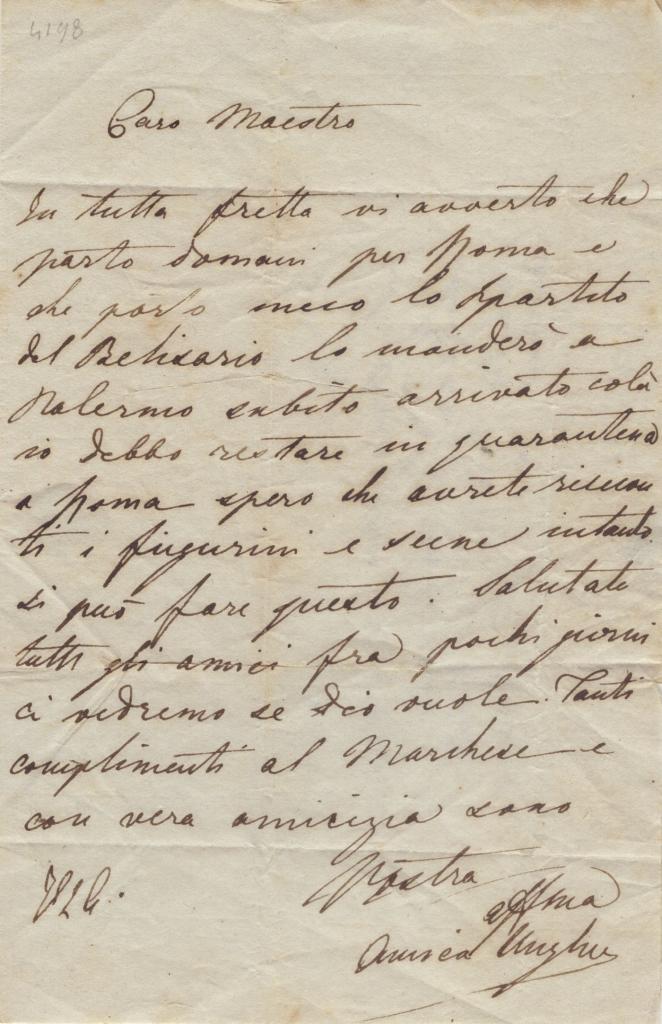 4198
Caro Maestro
In tutta fretta vi avverto che
parto domani per Roma e
che porto meco lo Spartito
del Belisario lo manderò a
Palermo subito arrivato colà
io debbo restare in quarantena
a Roma spero che avrete riscon
ti i figurini e scene intanto
si può fare questo. Salutate
tutti gli amici fra pochi giorni
ci vedremo se Dio vuole. Tanti
complimenti al Marchese e
con vera amicizia sono
Vostra
affma
Amica Ungher